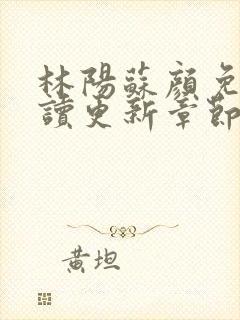 林陽蘇顏免
讀更新章節
黃坦